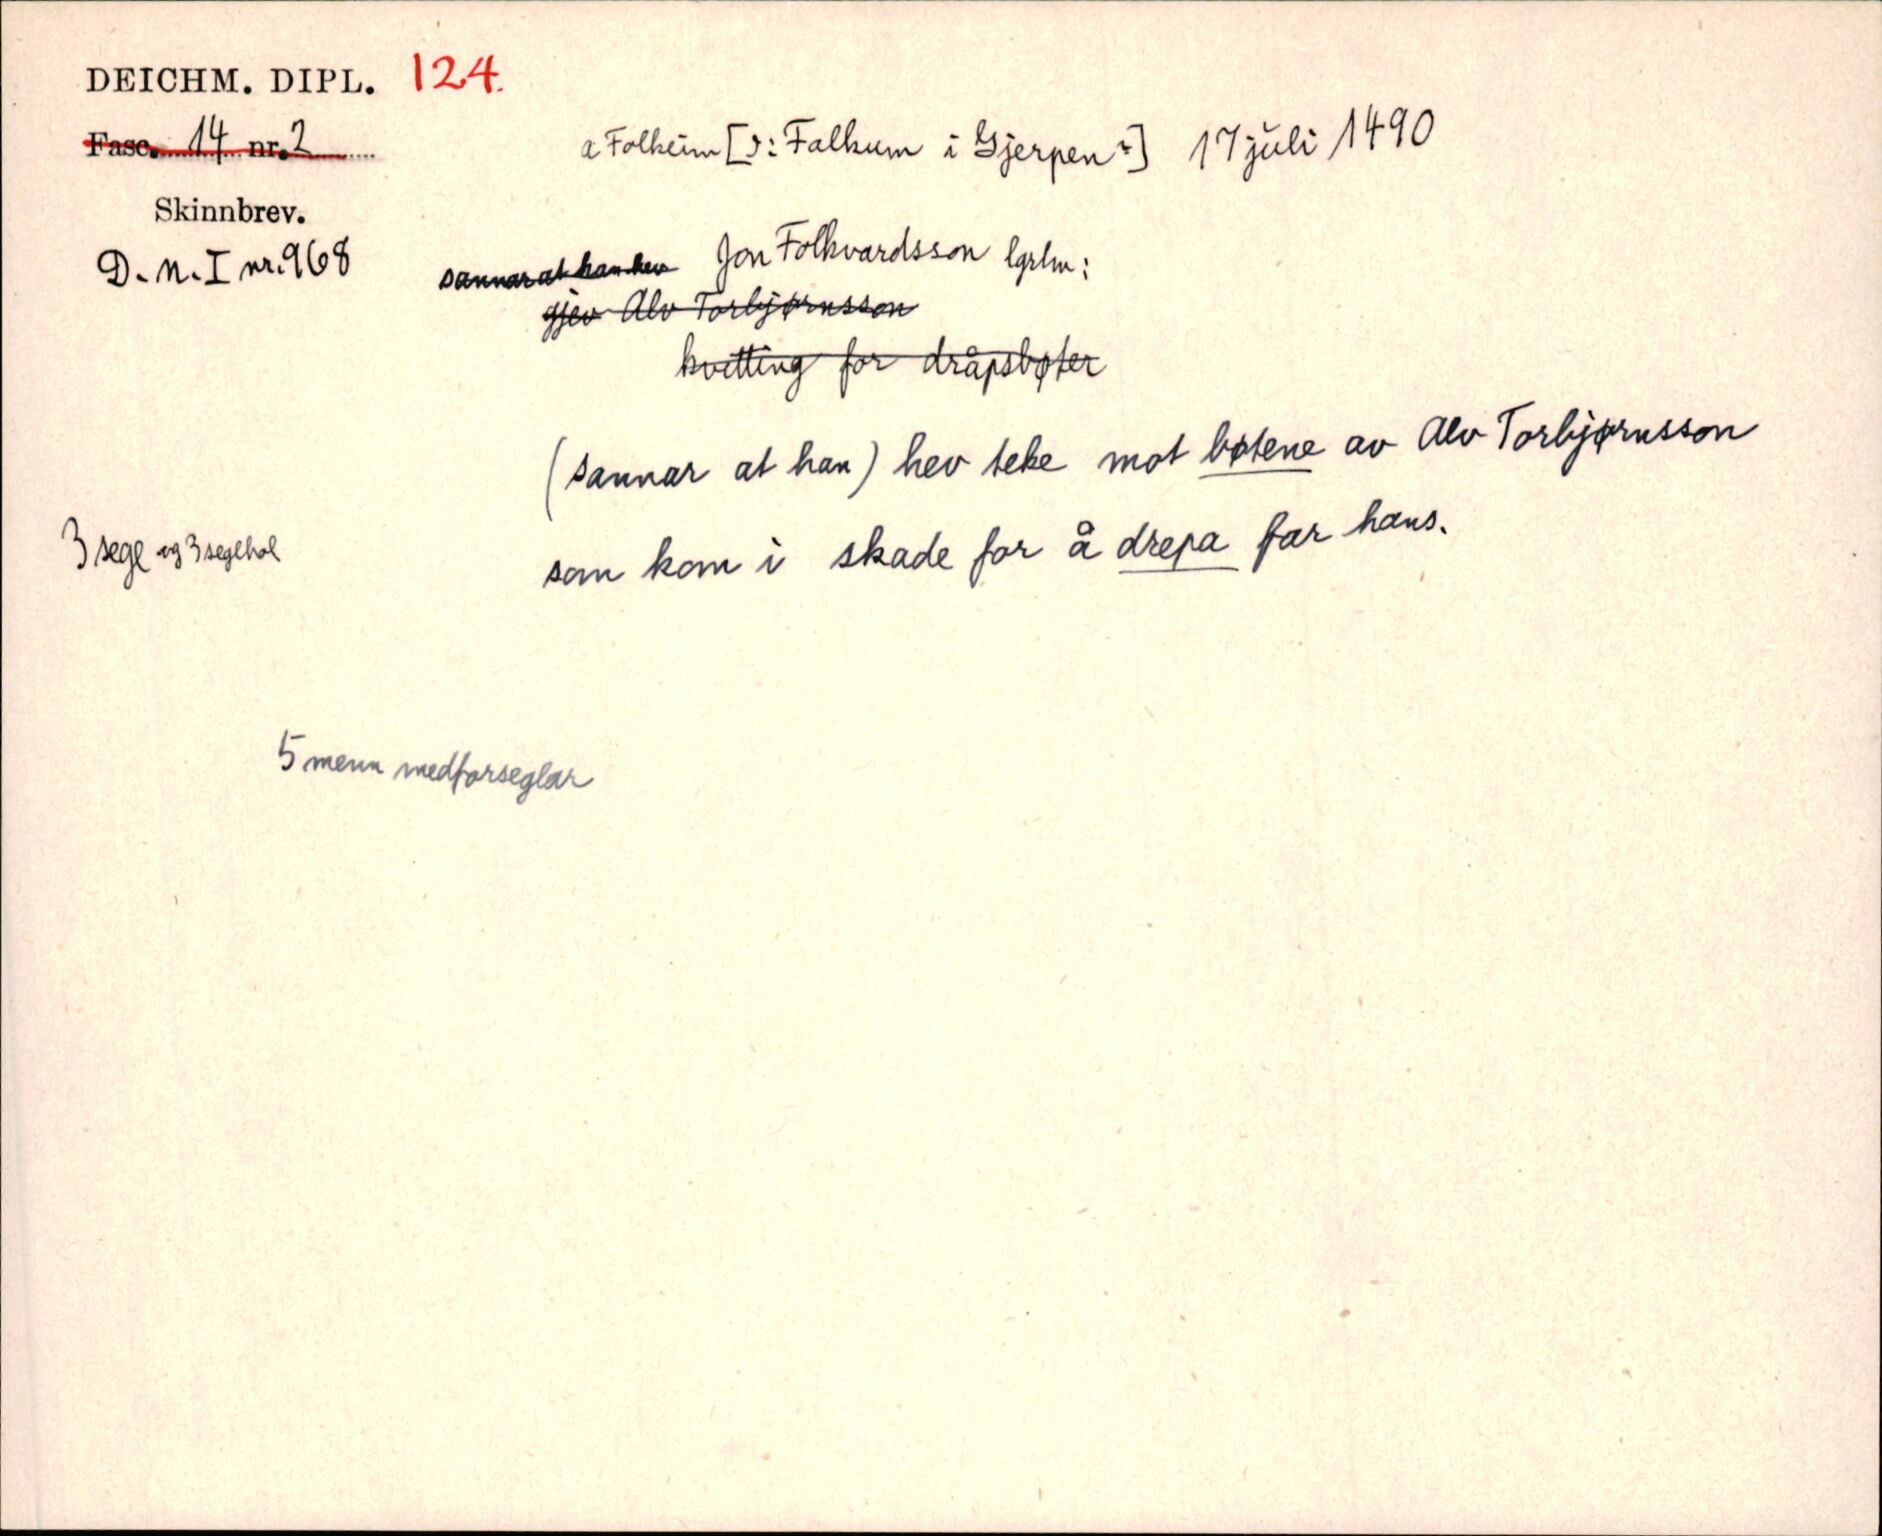 DEICHM. DIPL. 124.
Fasc. 14 nr. 2
a Folkeim [ɔ: Falkum i Gjerpen?] 17 juli 1490
Skinnbrev.
D. N. I nr. 968
sannar at han hev Jon Folkvardsson lgrlm:
gjev Alv Torbjørnsson
kvitting for dråpsbøter
(sannar at han) hev teke mot bøtene av Alv Torbjørnsson
som kom i skade for å drepa far hans.
3 segl og 3 seglhol
5 menn medforseglar